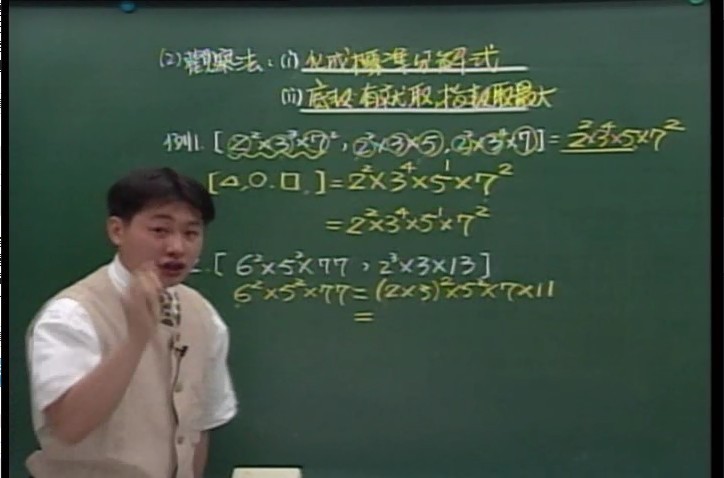 (2)觀察法:(i)化成標準分解式
(ii)底數有就取,指數取最大
例1.[2²×3³×7²,2²×3×5,2²×3⁴×7]=2²×3⁴×5×7²
[△,○,□]=2²×3⁴×5¹×7²
=2²×3⁴×5¹×7²
.[6²×5²×77,2³×3×13]
6²×5²×77=(2×3)²×5²×7×11
=